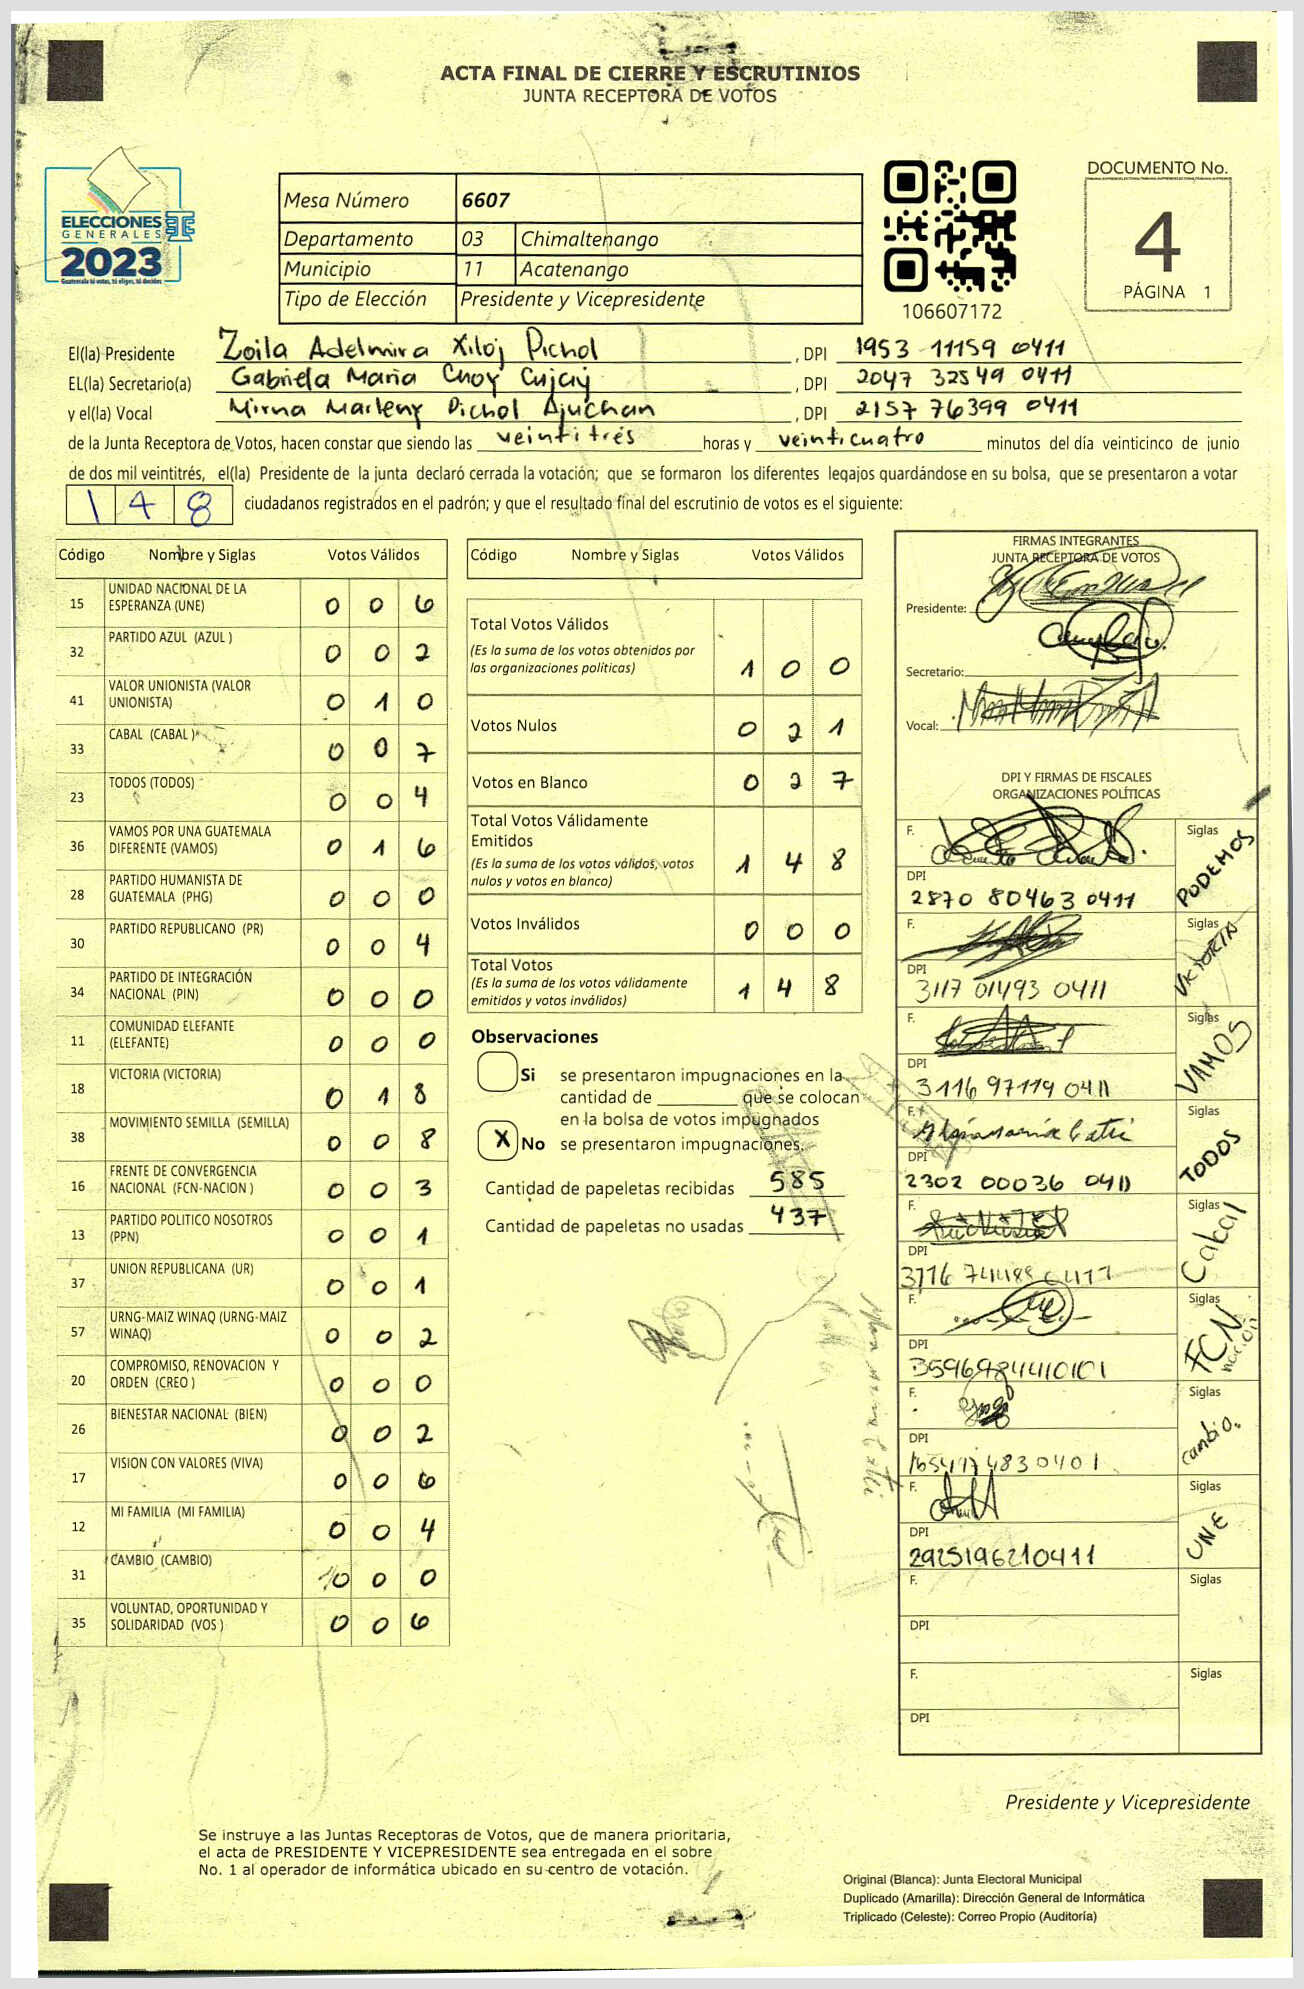 ACTA FINAL DE CIERRE Y ESCRUTINIOS
JUNTA RECEPTORA DE VOTOS
ELECCIONES
GENERALES
2023
Guatemala tú votas, tú eliges, tú decides
Mesa Número 6607
Departamento 03 Chimaltenango
Municipio 11 Acatenango
Tipo de Elección Presidente y Vicepresidente
106607172
DOCUMENTO No.
4
PÁGINA 1
El(la) Presidente Zoila Adelmira Xiloj Pichol , DPI 1953 11159 0411
EL(la) Secretario(a) Gabriela Maria Choy Cujcuj , DPI 2047 32549 0411
y el(la) Vocal Mirna Marleny Pichol Ajuchan , DPI 2157 76399 0411
de la Junta Receptora de Votos, hacen constar que siendo las veintitrés horas y veinticuatro minutos del día veinticinco de junio
de dos mil veintitrés, el(la) Presidente de la junta declaró cerrada la votación; que se formaron los diferentes legajos quardándose en su bolsa, que se presentaron a votar
148 ciudadanos registrados en el padrón; y que el resultado final del escrutinio de votos es el siguiente:
Código Nombre y Siglas Votos Válidos
15 UNIDAD NACIONAL DE LA ESPERANZA (UNE) 0 0 6
32 PARTIDO AZUL (AZUL ) 0 0 2
41 VALOR UNIONISTA (VALOR UNIONISTA) 0 1 0
33 CABAL (CABAL ) 0 0 7
23 TODOS (TODOS) 0 0 4
36 VAMOS POR UNA GUATEMALA DIFERENTE (VAMOS) 0 1 6
28 PARTIDO HUMANISTA DE GUATEMALA (PHG) 0 0 0
30 PARTIDO REPUBLICANO (PR) 0 0 4
34 PARTIDO DE INTEGRACIÓN NACIONAL (PIN) 0 0 0
11 COMUNIDAD ELEFANTE (ELEFANTE) 0 0 0
18 VICTORIA (VICTORIA) 0 1 8
38 MOVIMIENTO SEMILLA (SEMILLA) 0 0 8
16 FRENTE DE CONVERGENCIA NACIONAL (FCN-NACION ) 0 0 3
13 PARTIDO POLITICO NOSOTROS (PPN) 0 0 1
37 UNION REPUBLICANA (UR) 0 0 1
57 URNG-MAIZ WINAQ (URNG-MAIZ WINAQ) 0 0 2
20 COMPROMISO, RENOVACION Y ORDEN (CREO ) 0 0 0
26 BIENESTAR NACIONAL (BIEN) 0 0 2
17 VISION CON VALORES (VIVA) 0 0 6
12 MI FAMILIA (MI FAMILIA) 0 0 4
31 CAMBIO (CAMBIO) 0 0 0
35 VOLUNTAD, OPORTUNIDAD Y SOLIDARIDAD (VOS ) 0 0 6
Código Nombre y Siglas Votos Válidos
Total Votos Válidos 1 0 0
(Es la suma de los votos obtenidos por
las organizaciones políticas)
Votos Nulos 0 2 1
Votos en Blanco 0 2 7
Total Votos Válidamente
Emitidos 1 4 8
(Es la suma de los votos válidos, votos
nulos y votos en blanco)
Votos Inválidos 0 0 0
Total Votos 1 4 8
(Es la suma de los votos válidamente
emitidos y votos inválidos)
Observaciones
Si se presentaron impugnaciones en la
cantidad de ________ que se colocan
en la bolsa de votos impugnados
X No se presentaron impugnaciones.
Cantidad de papeletas recibidas 585
Cantidad de papeletas no usadas 437
FIRMAS INTEGRANTES
JUNTA RECEPTORA DE VOTOS
Presidente:
Secretario:
Vocal:
DPI Y FIRMAS DE FISCALES
ORGANIZACIONES POLÍTICAS
F. Siglas PODEMOS
DPI 2870 80463 0411
F. Siglas VICTORIA
DPI 3117 01493 0411
F. Siglas VAMOS
DPI 3116 97119 0411
F. Siglas TODOS
DPI 2302 00036 0411
F. Siglas Cabal
DPI
F. Siglas FCN nación
DPI
F. Siglas cambio.
DPI
F. Siglas UNE
DPI 2925196210411
F. Siglas
DPI
F. Siglas
DPI
Presidente y Vicepresidente
Se instruye a las Juntas Receptoras de Votos, que de manera prioritaria,
el acta de PRESIDENTE Y VICEPRESIDENTE sea entregada en el sobre
No. 1 al operador de informática ubicado en su centro de votación.
Original (Blanca): Junta Electoral Municipal
Duplicado (Amarilla): Dirección General de Informática
Triplicado (Celeste): Correo Propio (Auditoría)